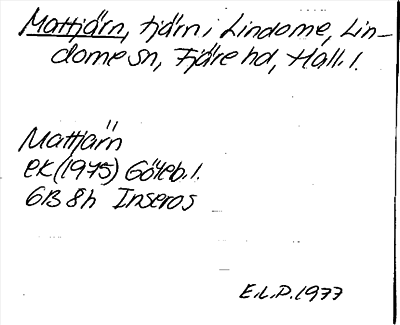 Mattjärn, tjärn i Lindome, Lin-
dome sn, Fjäre hd, Hall. l.
Mattjärn
EK (1975) Göteb. l.
6B 8h Inseros
E.L.P. 1977